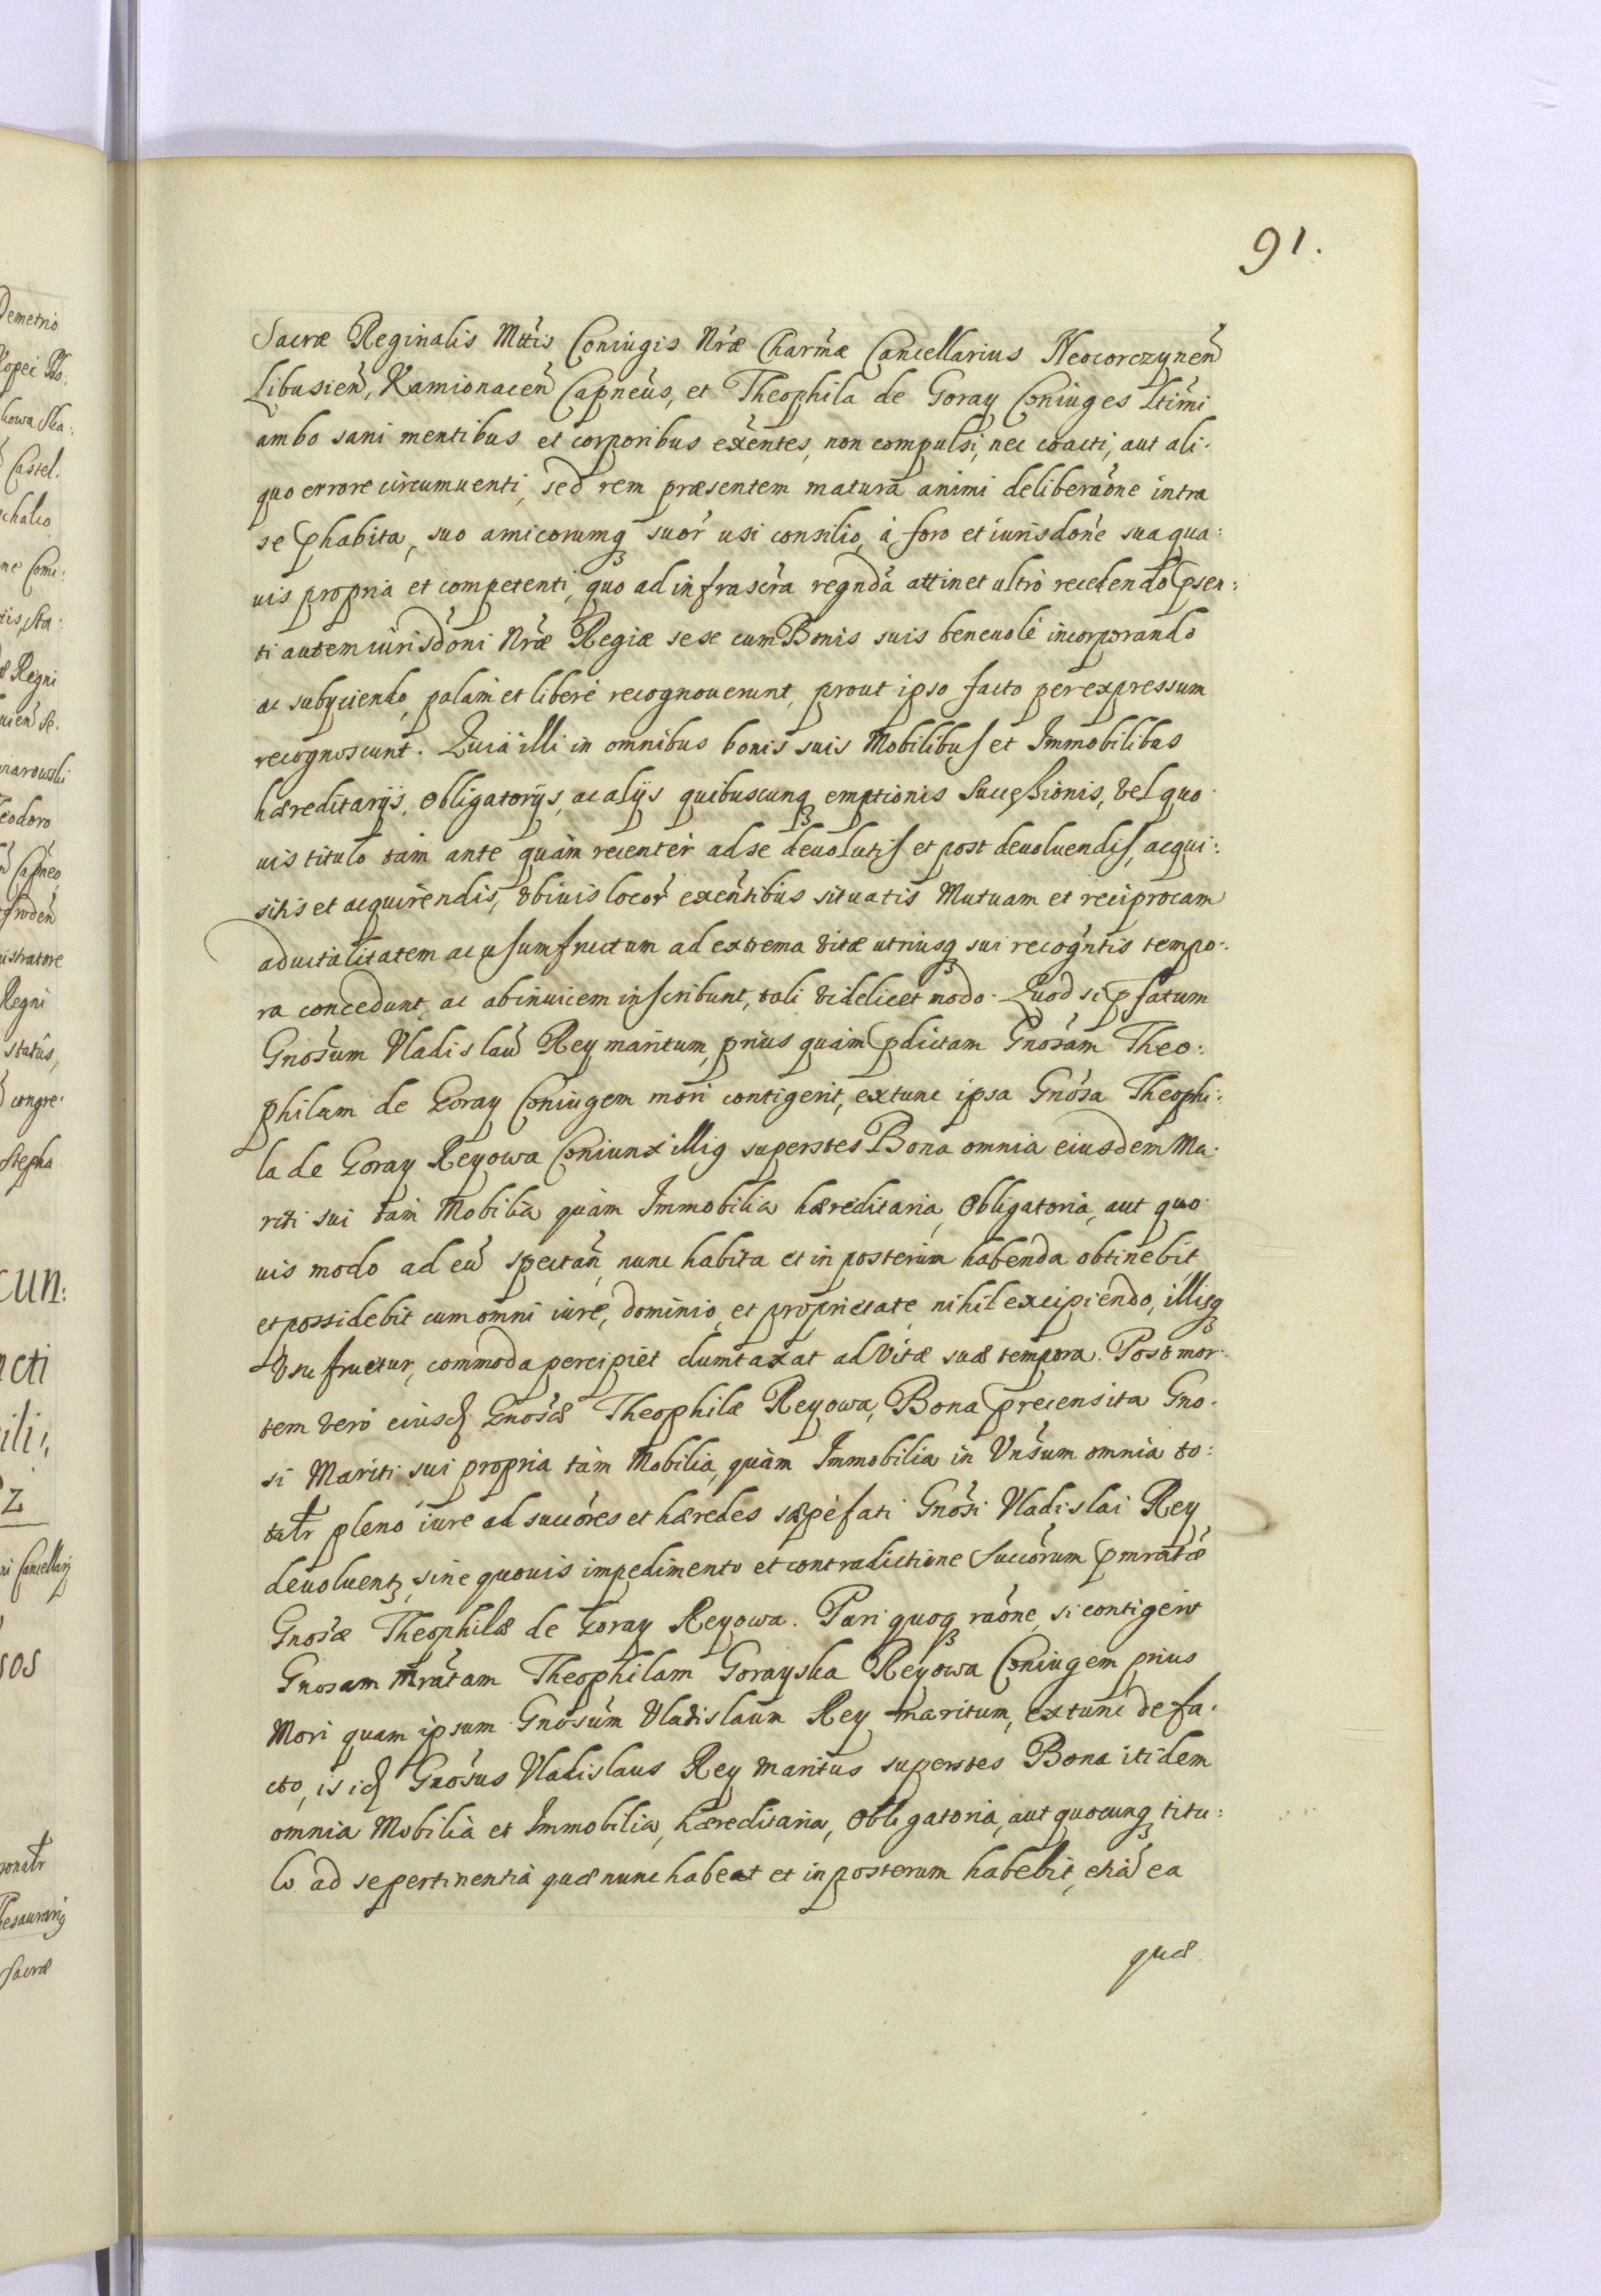 91.
Sacræ Reginalis Mttis Coniugis Nræ Charmæ Cancellarius Neocorczynen̄
Libusien̄, Kamionacen̄ Capneus, et Theophila de Goray Coniuges Ltimi
ambo sani mentibus et corporibus exentes, non compulsi, nec coacti, aut ali:
quo errore circumuenti, sed rem præsentem matura animi deliberaōne intra
se phabita, suo amicorumq suor̄ usi consilio, à foro et iurisdōne sua qua:
uis propria et competenti, quo ad infrascra regnda attinet ultrò recedendo psen:
ti autem iurisdōni Nræ Regiæ sese cum Bonis suis beneuolè incorporando
ac subyciendo, palàm et liberè recognouerunt, prout ipso facto per expressum
recognoscunt. Quia illi in omnibus bonis suis Mobilibus et Immobilibus
hæreditarijs, Obligatorijs, ac alijs quibuscunq emptionis Successionis, vel quo
uis titulo tàm ante quàm recentèr ad se deuolutis et post deuoluendis, acqui:
sitis et acquirendis, vbiuis locor̄ exentibus situatis Mutuam et reciprocam
aduitalitatem ac usumfructum ad extrema vitæ utriusq sui recogntis tempo:
ra concedunt, ac abinuicem inscribunt, tali videlicet modo. Quod si pfatum
Gnosum Vladislaū Rey maritum, prius quàm pdictam Gnosam Theo:
philam de Goray Coniugem mori contigerit, extunc ipsa Gnosa Theophi:
la de Goray Reyowa Coniunx illig superstes Bona omnia eiusdem Ma:
riti sui tàm Mobilia quàm Immobilia hæreditaria, Obligatoria, aut quo
uis modo ad eū spectan̄, nunc habita et in posterum habenda obtinebit
et possidebit cum omni iure, dominio, et proprietate, nihil excipiendo, illisq
Vsufruetur, commoda percipiet dumtaxat ad Vitæ suæ tempora. Post mor:
tem verò eiusd Gnosæ Theophilæ Reyowa, Bona precensita Gno:
si Mariti sui propria tàm Mobilia, quàm Immobilia in Vnsum omnia to:
talr pleno iure ad succores et hæredes sæpefati Gnosi Vladislai Rey
deuoluent, sine quouis impedimento et contradictione Succorum pmratæ
Gnosæ Theophilæ de Goray Reyowa. Pari quoq raōne, si contigerit
Gnosam mratam Theophilam Gorayska Reyowa Coniugem prius
Mori quam ipsum Gnosum Vladislaum Rey maritum, extunc de fa:
cto, is id Gnosus Vladislaus Rey maritus superstes Bona itidem
omnia Mobilia et Immobilia, hæreditaria, Obligatoria, aut quocunq titu:
lo ad se pertinentia quæ nunc habeat et in posterum habebit, etiā ea
quæ